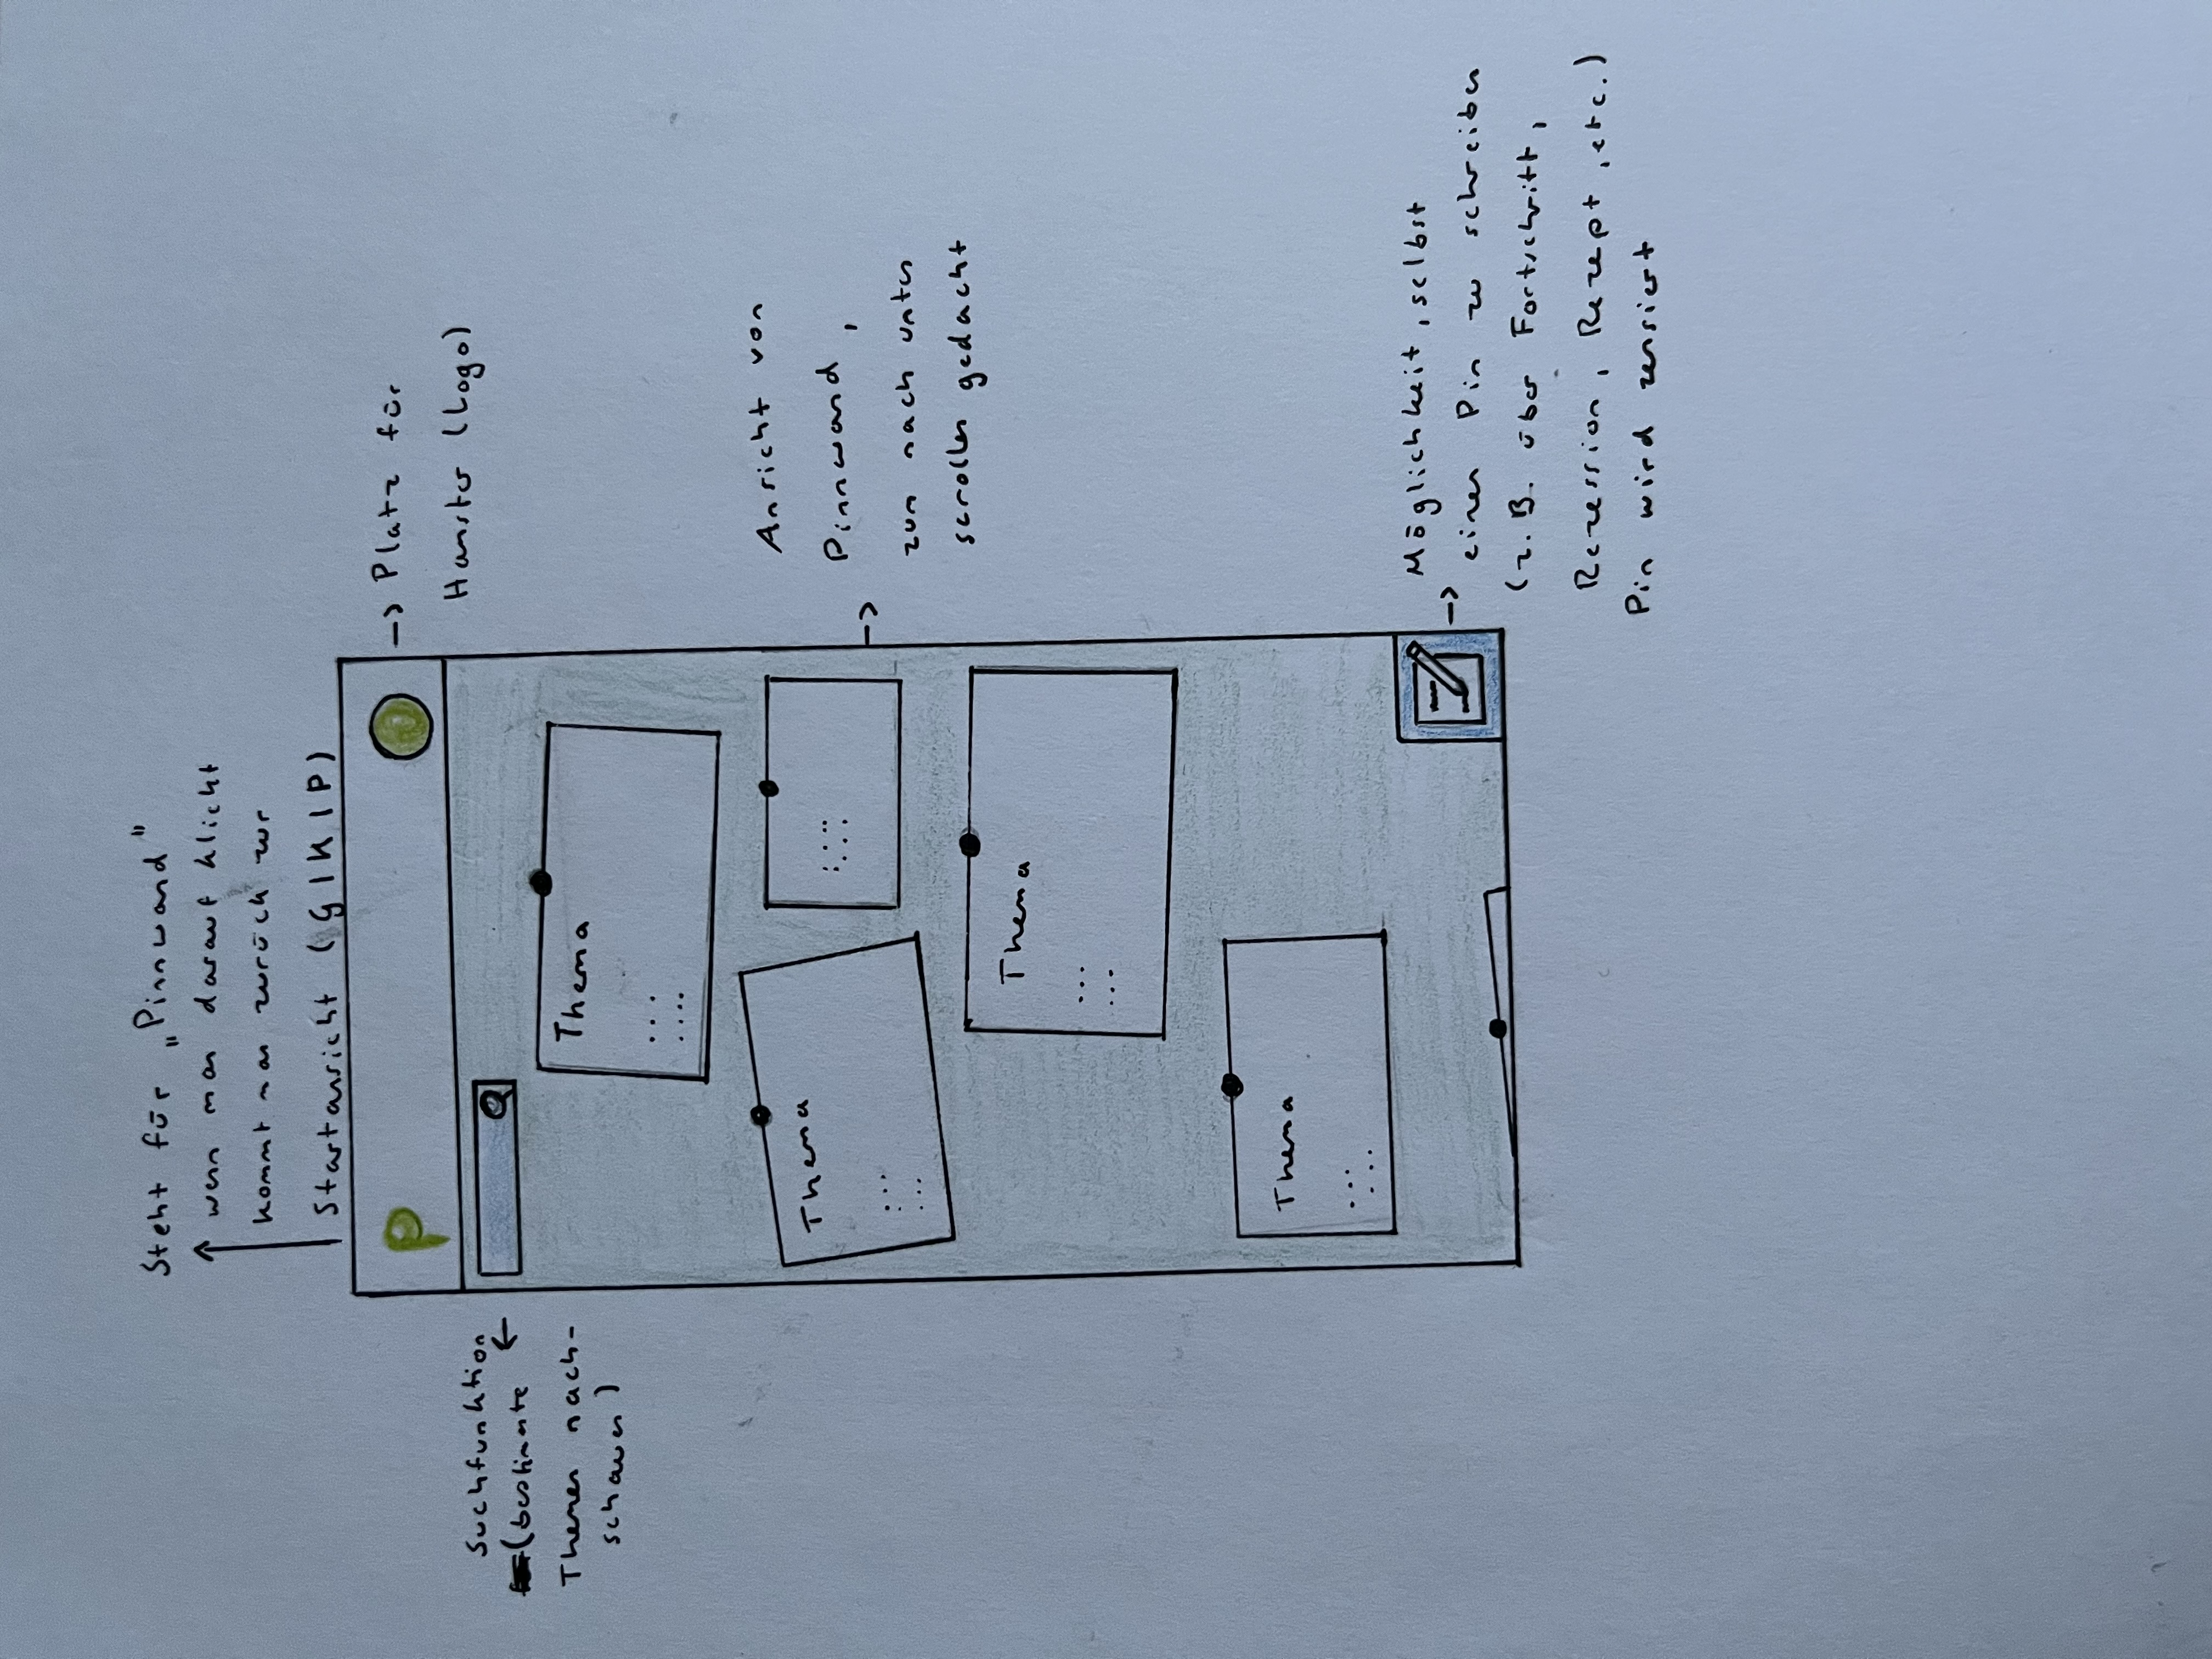 Steht für „Pinnwand"
wenn man darauf klickt
kommt man zurück zur
Startansicht (G|K|P)
P
→ Platz für
Hamster (Logo)
Suchfunktion ←
(bestimmte
Themen nach-
schauen)
Thema
... 
....
Thema
Ansicht von
Pinnwand,
→
zum nach unten
scrollen gedacht
Thema
...
...
Thema
...
...
→ Möglichkeit, selbst
einen Pin zu schreiben
(z.B. über Fortschritt,
Rezession, Rezept, etc.)
Pin wird zensiert